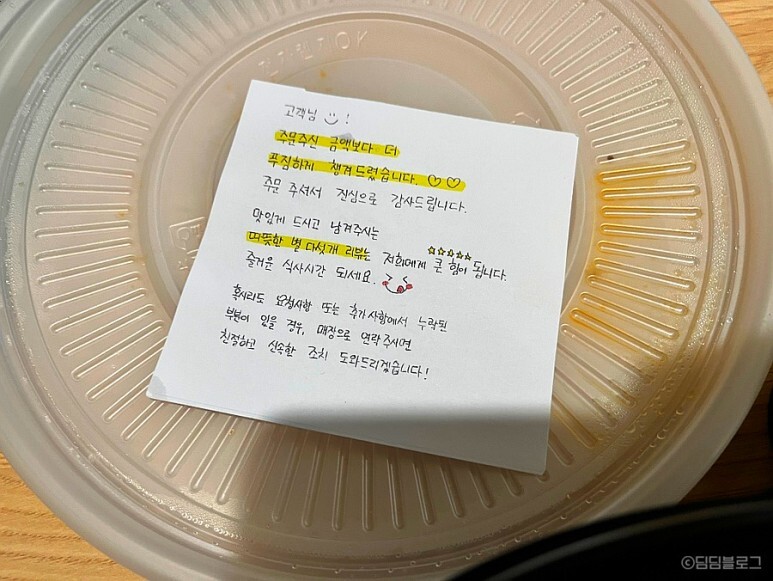 고객님 !
주문주신 금액보다 더
푸짐하게 챙겨드렸습니다. ♡♡
주문 주셔서 진심으로 감사드립니다.
맛있게 드시고 남겨주시는
☆☆☆☆☆
따뜻한 별 다섯개 리뷰는 저희에게 큰 힘이 됩니다.
즐거운 식사시간 되세요.
혹시라도 요청사항 또는 추가사항에서 누락된
부분이 있을 경우, 매장으로 연락주시면
친절하고 신속한 조치 도와드리겠습니다!
©딤딤블로그